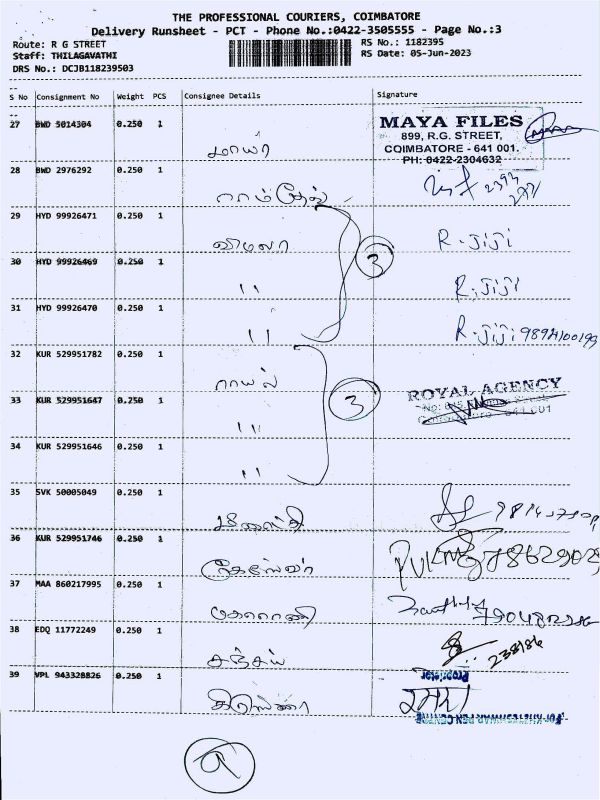 THE PROFESSIONAL COURIERS, COIMBATORE
Delivery Runsheet - PCT - Phone No.:0422-3505555 - Page No.:3
Route: R G STREET
RS No.: 1182395
Staff: THILAGAVATHI
RS Date: 05-Jun-2023
DRS No.: DCJB118239503
S No Consignment No Weight PCS Consignee Details Signature
27 BWD 5014304 0.250 1
மாயா
MAYA FILES
899, R.G. STREET,
COIMBATORE - 641 001.
PH: 0422-2304632
28 BWD 2976292 0.250 1
ராம்தேவ்
29 HYD 99926471 0.250 1
விமலா
R. JiJi
30 HYD 99926469 0.250 1
" R. JiJi
31 HYD 99926470 0.250 1
" R. JiJi
3
32 KUR 529951782 0.250 1
ராயல்
33 KUR 529951647 0.250 1
"
ROYAL AGENCY
34 KUR 529951646 0.250 1
"
3
35 SVK 50005049 0.250 1
36 KUR 529951746 0.250 1
37 MAA 860217995 0.250 1
மகாராணி
38 EDQ 11772249 0.250 1
சஞ்சய்
238186
39 VPL 943328826 0.250 1
Proprietor